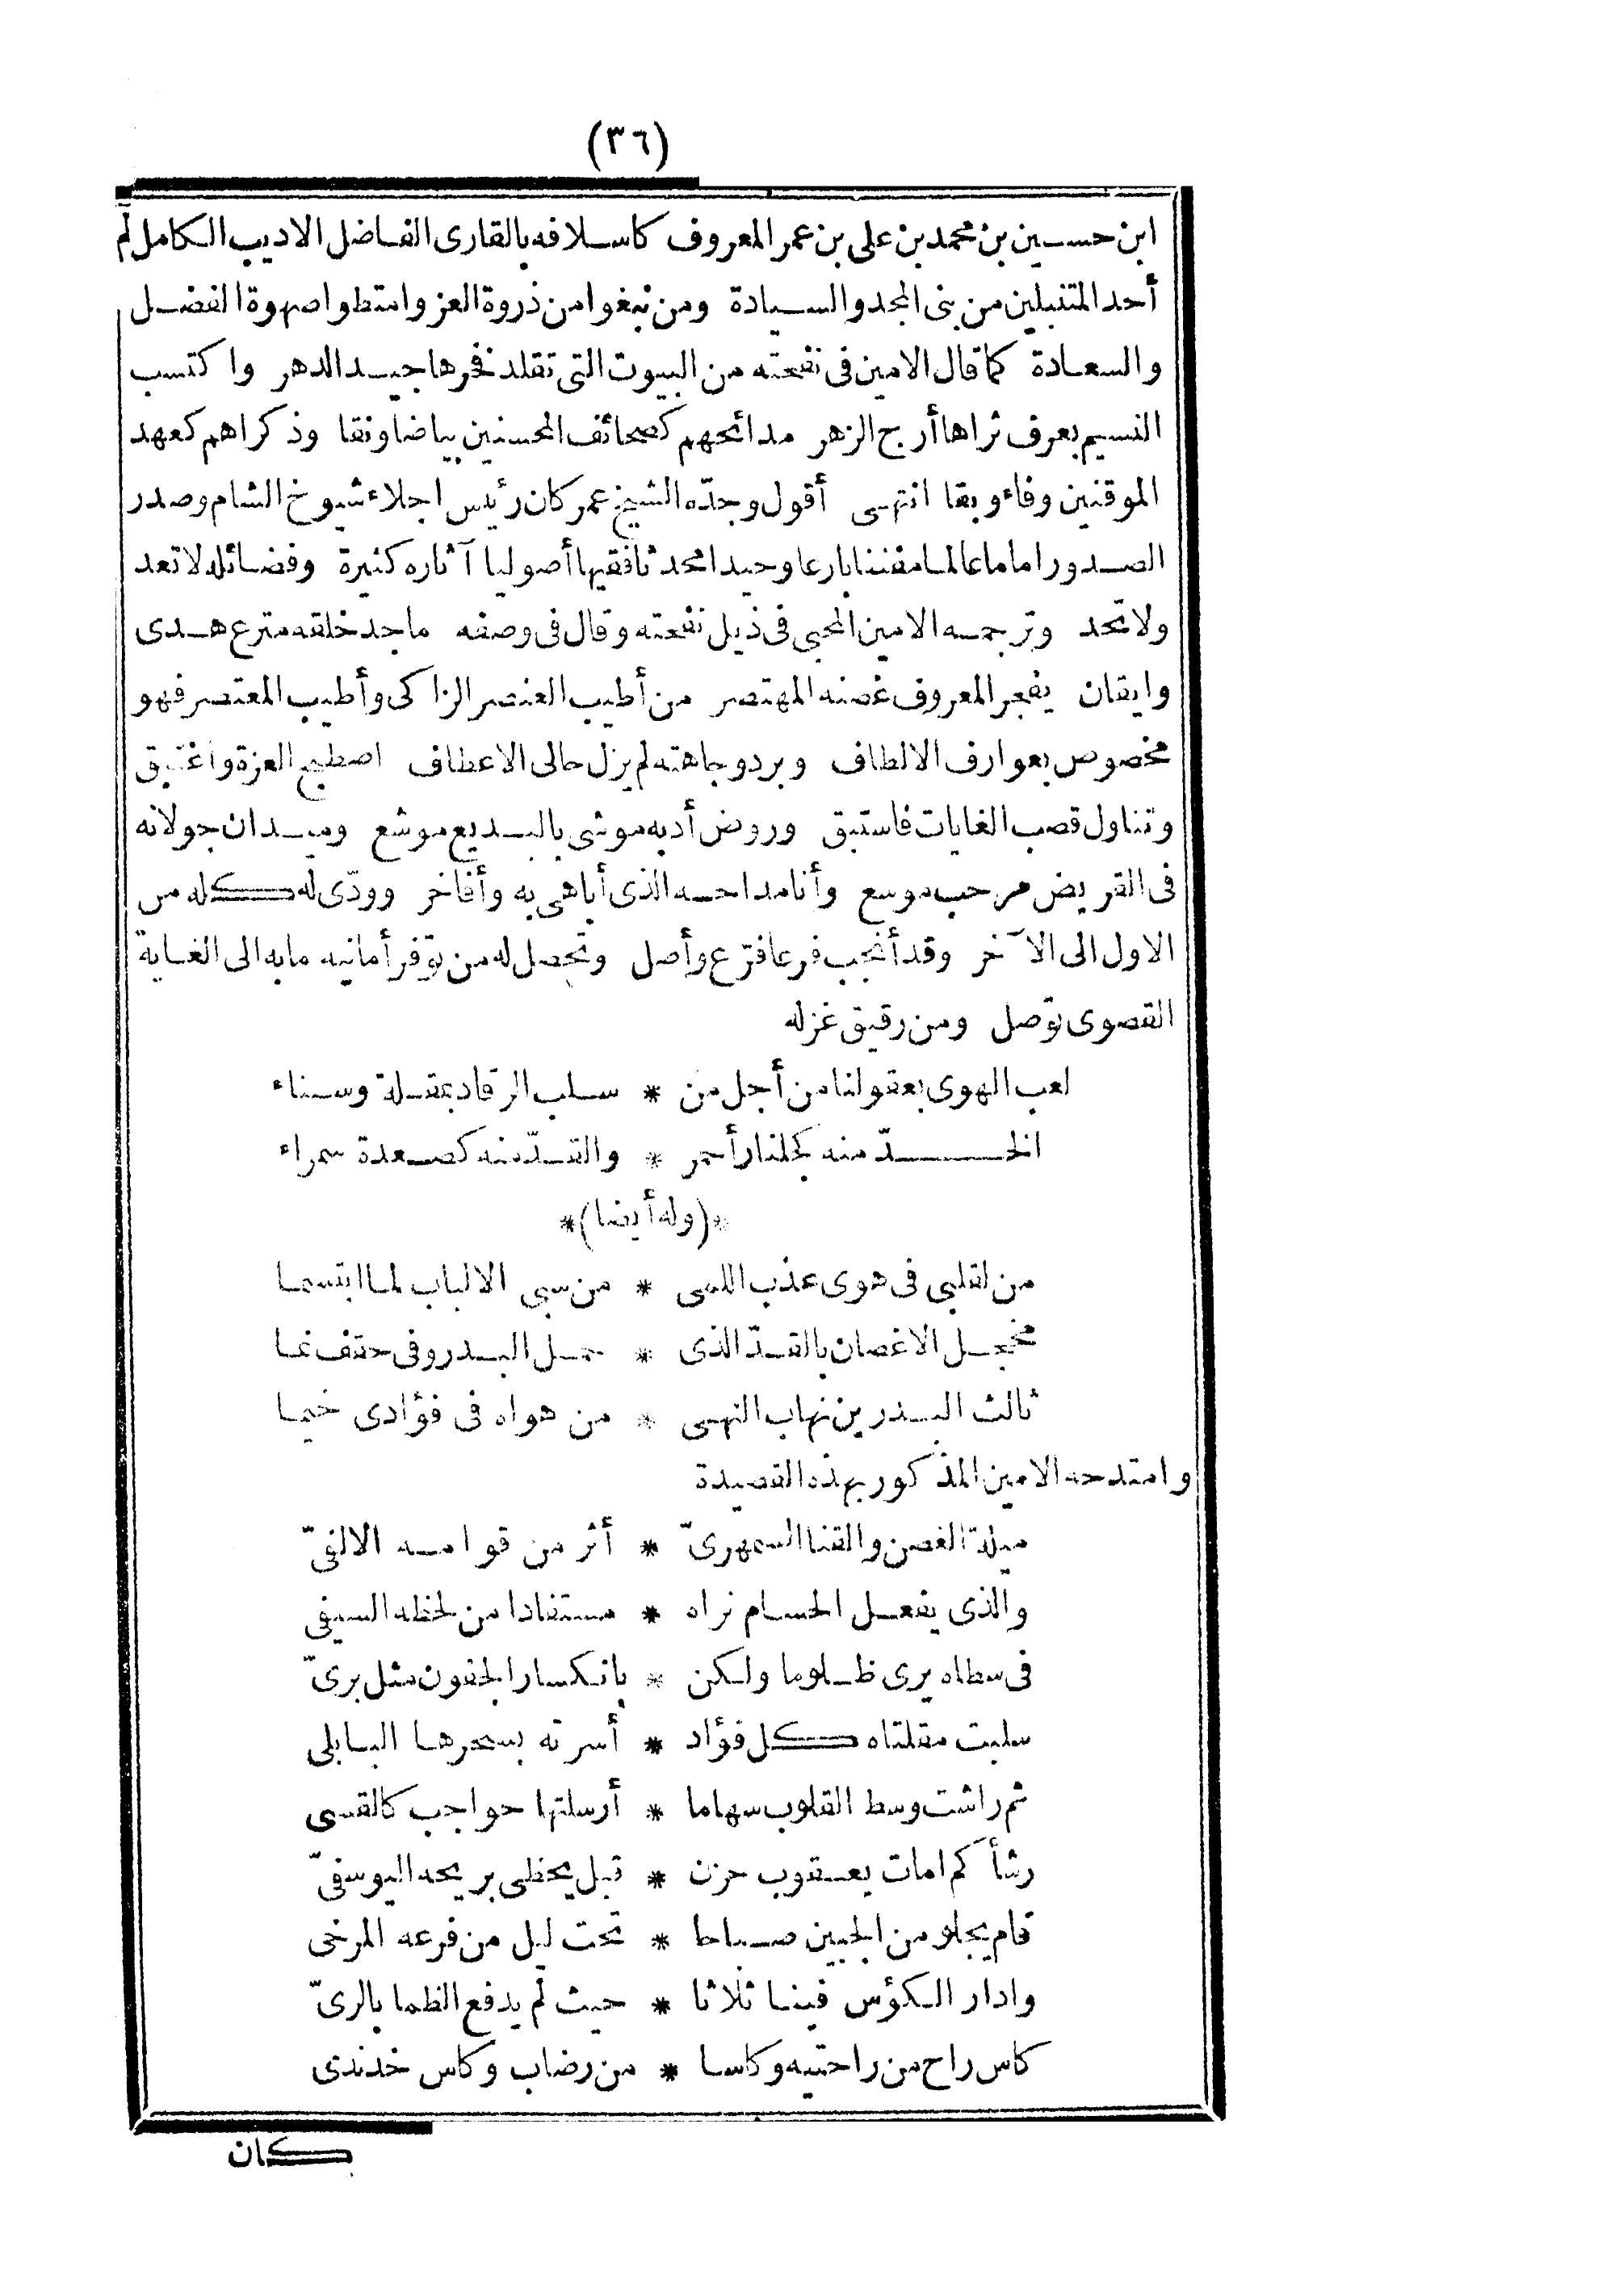 (٣٦)
ابن حسين بن محمد بن على بن عمر المعروف كاسلافه بالقارى الفاضل الاديب الكامل لم
أحد المتنبلين من بنى المجد والسيادة ومن نبغوا من ذروة العز وامتطوا صهوة الفضل
والسعادة كما قال الامين فى نفحته من البيوت التى تقلد فخرها جيد الدهر واكتسب
النسيم بعرف ثراها أرج الزهر مدائحهم كصحائف المحسنين بياضا ونقا وذكراهم كعهد
الموقنين وفاء وبقا انتهى أقول وجدّه الشيخ عمر كان رئيس اجلاء شيوخ الشام وصدر
الصدور اماما عالما مفننا بارعا وحيدا محدثا فقيها أصوليا آثاره كثيرة وفضائله لا تعد
ولا تحد وترجمه الامين المحبى فى ذيل نفحته وقال فى وصفه ماجد خلقه مترع هدى
وايقان يفجر المعروف غصنه المهتصر من أطيب العنصر الزاكى وأطيب المعتصر فهو
مخصوص بعوارف الالطاف وبرد وجاهته لم يزل حالى الاعطاف اصطبح العزة واغتبق
وتناول قصب الغايات فاستبق وروض أدبه موشى بالبديع موشع وميدان جولانه
فى القريض مرحب موسع وأنا مداحه الذى أباهى به وأفاخر وودّى له كله من
الاول الى الآخر وقد أنجب فرعا فترّع وأصل وتحصل له من توفر أمانيه ما به الى الغاية
القصوى توصل ومن رقيق غزله
لعب الهوى بعقولنا من أجل من * سلب الرقاد بمقلة وسناء
الخدّ منه كجلنار أحمر * والقدّ منه كصعدة سمراء
*(وله أيضا)*
من لقلبى فى هوى عذب اللمى * من سبى الالباب لما ابتسما
مخجل الاغصان بالقدّ الذى * حمل البدر وفى حقف نما
ثالث البدرين نهاب النهى * من هواه فى فؤادى خيما
وامتدحه الامين المذكور بهذه القصيدة
ميلة الغصن والقنا السمهرىّ * أثر من قوامه الالفىّ
والذى يفعل الحسام نراه * مستفادا من لحظه السيفى
فى سطاه يرى ظلوما ولكن * بانكسار الجفون مثل برىّ
سلبت مقلتاه كل فؤاد * أسرته بسحرها البابلى
ثم راشت وسط القلوب سهاما * أرسلتها حواجب كالقسى
رشأ كم امات يعقوب حزن * قبل يحظى بريحه اليوسفىّ
قام يجلو من الجبين صباحا * تحت ليل من فرعه المرخى
وادار الكؤس فينا ثلاثا * حيث لم يدفع الظما بالرىّ
كاس راح من راحتيه وكاسا * من رضاب وكاس خدندى
كان